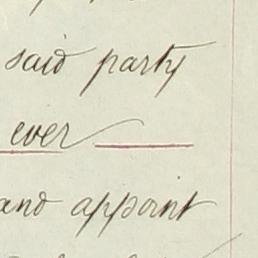 said party
ever
and appoint